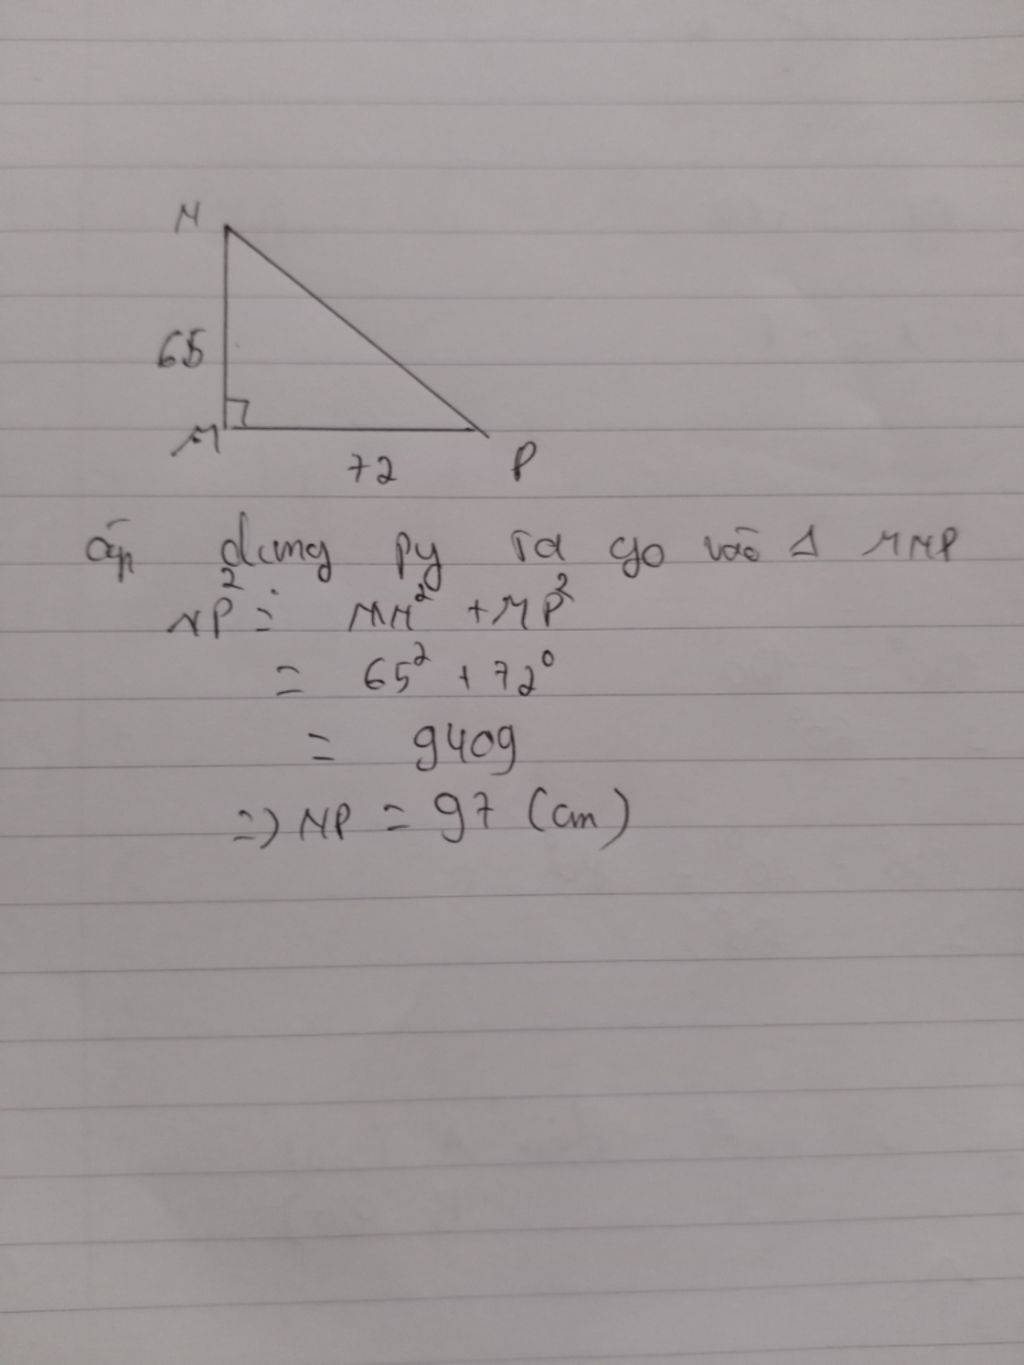 N
65
M
72
P
áp dụng py ta go vào Δ MNP
NP² = MN² + MP²
= 65² + 72⁰
= 9409
=> NP = 97 (cm)